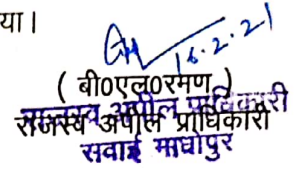 या।
16.2.21
( बी0एल0रमण )
राजस्व अपील प्राधिकारी
राजस्व अपील प्राधिकारी
सवाई माधोपुर